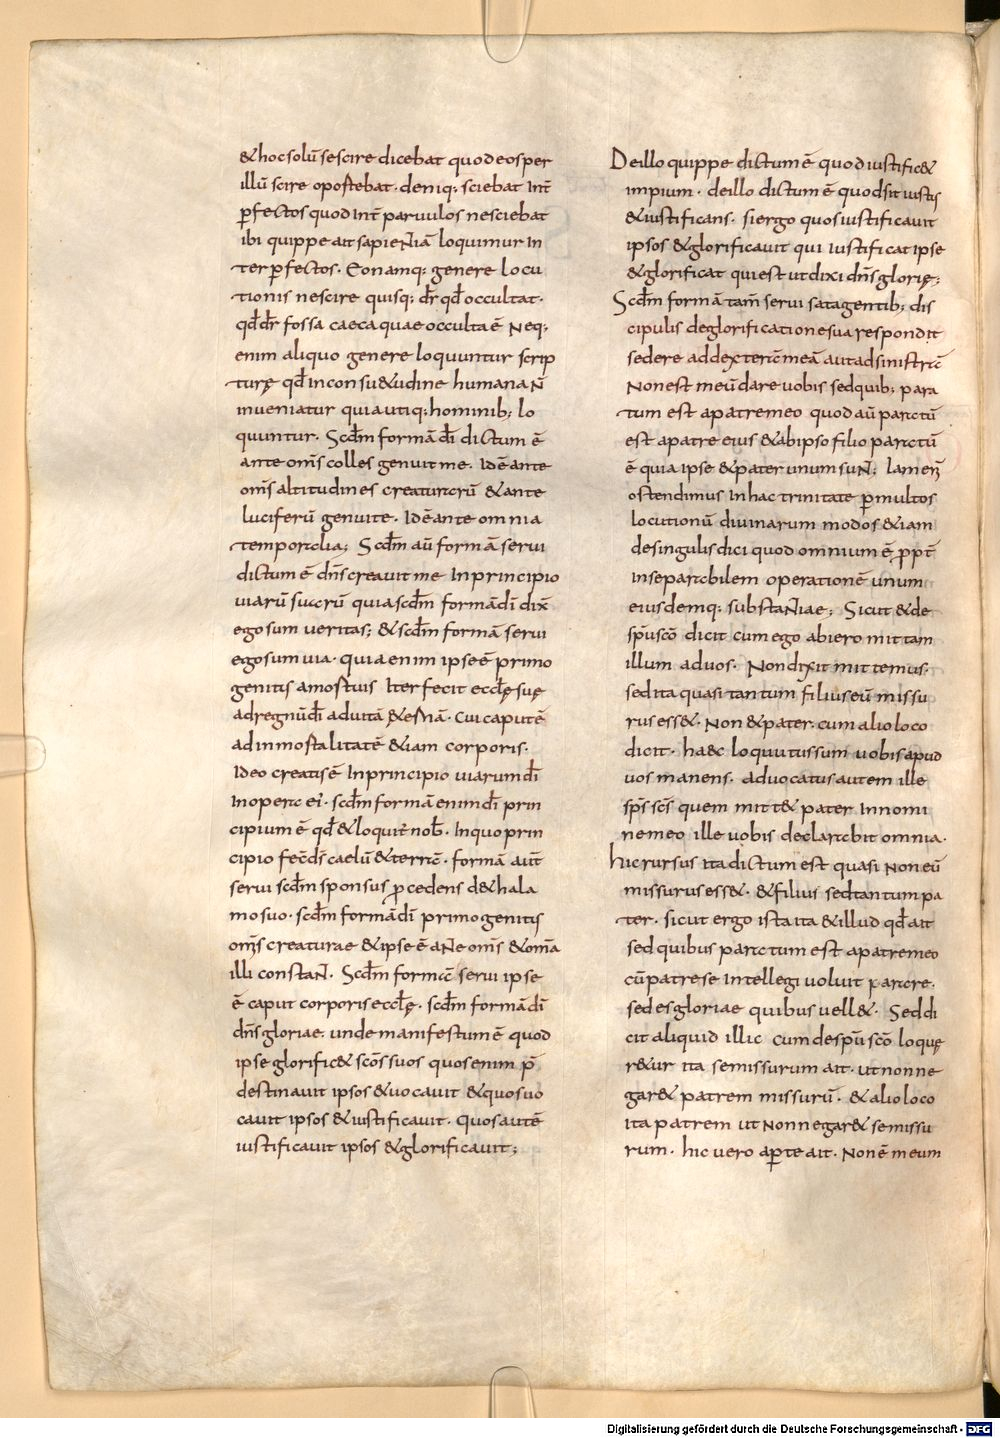 &hocsolū sescire dicebat quodeosper
illū scire oportebat. deniq; sciebat int̄
ꝑfectos quod int̄ paruulos nesciebat
ibi quippe ait sapientiā loquimur in
ter ꝑfectos. Eonamq; genere locu
tionis nescire quisq; dr̄ qđ occultat.
qđ dr̄ fossa caeca quae occulta ē Neq;
enim aliquo genere loquuntur scrip
turę qđ in consu&udine humana N̄
inueniatur quia utiq; hominib; lo
quuntur. Scđm formā dī dictum ē
ante om̄s colles genuit me. Idē ante
om̄s altitudines creaturarū &ante
luciferū genui te. Idē ante omnia
temporalia; Scđm aū formā serui
dictum ē dn̄s creauit me Inprincipio
uiarū suarū quia scđm formā dī dix̄
ego sum ueritas; & scđm formā serui
ego sum uia. quia enim ipse ē primo
genitus amortuis Iter fecit eccłę suę
ad regnū dī ad uitā &ernā. cui caput ē
ad inmortalitatē &iam corporis.
Ideo creatus ē Inprincipio uiarum dī
In opera ei'. scđm formā enim dī prin
cipium ē qđ & loquit̄ nob̄. In quo prin
cipio fec̄ ds̄ caelū & terrā. formā aūt
serui scđm sponsus ꝓcedens de thala
mo suo. scđm formā dī primogenitus
om̄s creaturae & ipse ē ante om̄s & om̄a
illi constant. Scđm formā serui ipse
ē caput corporis eccłę. scđm formā dī
dn̄s gloriae. unde manifestum ē quod
ipse glorific& scōs suos quos enim p̄
destinauit ipsos &uocauit &quos uo
cauit ipsos &iustificauit. quos autē
iustificauit ipsos &glorificauit;
De illo quippe dictum ē quod iustific&
impium. de illo dictum ē quod sit iustus
&iustificans. si ergo quos iustificauit
ipsos &glorificauit qui iustificat ipse
&glorificat qui est ut dixi dn̄s glorię;
Scđm formā tam̄ serui satagentib; dis
cipulis de glorificatione sua respondit
sedere ad dexterā meā aut ad sinistrā
Non est meū dare uobis sed quib; para
tum est a patre meo quod aū paratū
est a patre eius &ab ipso filio paratū
ē quia ipse &pater unum sunt;
ostendimus in hac trinitate ꝑ multos
locutionū diuinarum modos &iam
de singulis dici quod omnium ē ꝓpt̄
inseparabilem operationē unum
eiusdemq; substantiae; Sicut &de
sp̄u scō dicit cum ego abiero mittam
illum ad uos. Non dixit mittemus.
sed ita quasi tantum filius eū missu
rus ess&. Non &pater. cum alio loco
dicit. haec loquutus sum uobis apud
uos manens. aduocatus autem ille
sp̄s scs̄ quem mitt& pater in nomi
ne meo ille uobis declarabit omnia.
hic rursus ita dictum est quasi non eū
missurus ess& &filius sed tantum pa
ter. sicut ergo ista ita &illud qđ ait
sed quibus paratum est a patre meo
cū patre se intellegi uoluit parare.
sedes gloriae quibus uell&. Sed di
cit aliquid illic cum de sp̄u scō loque
r&ur ita se missurum ait. ut non ne
gar& patrem missurū. &alio loco
ita patrem ut non negar& se missu
rum. hic uero aꝑte ait. Non ē meum
Digitalisierung gefördert durch die Deutsche Forschungsgemeinschaft - DFG